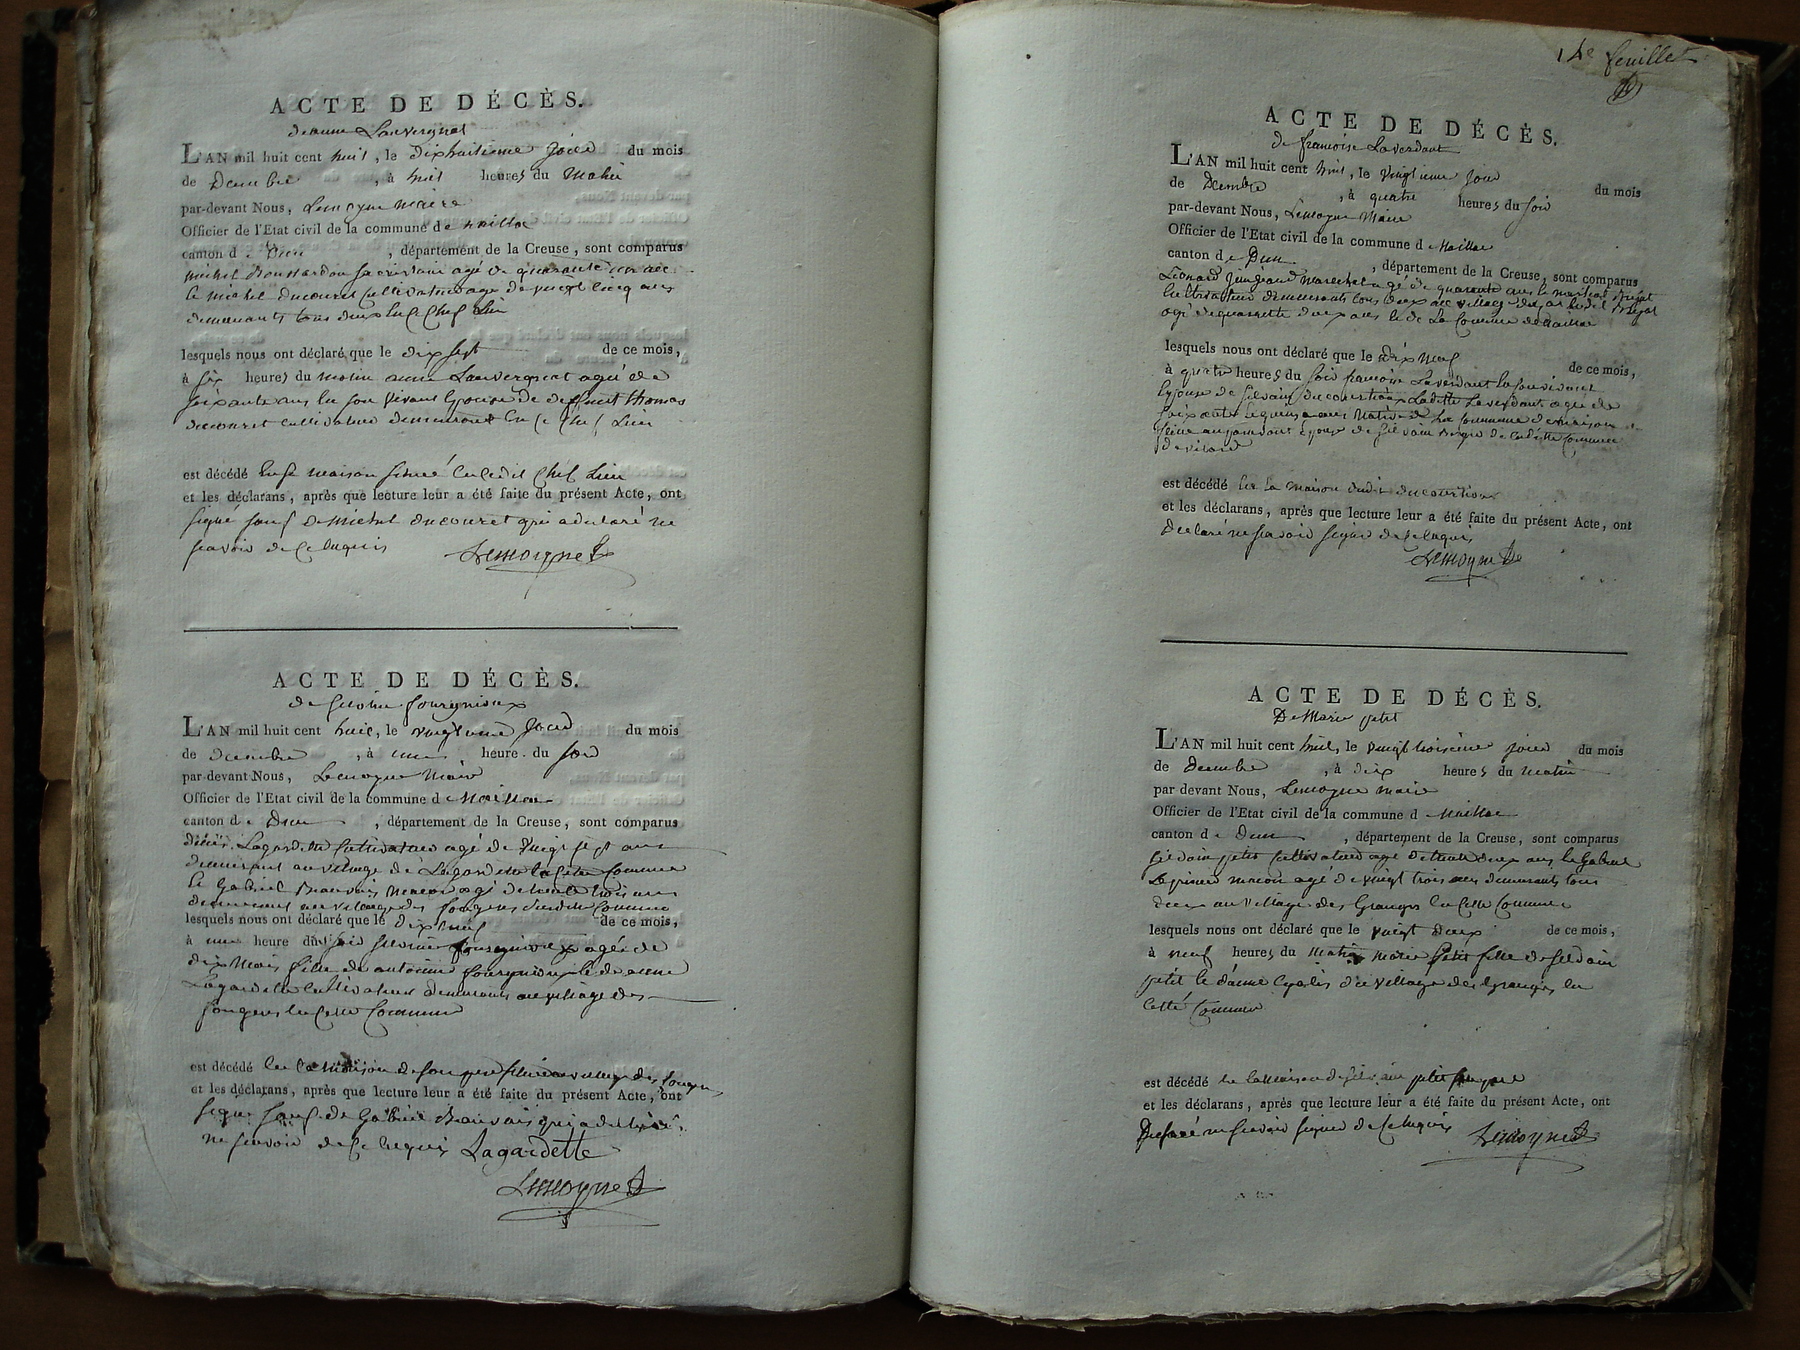 ACTE DE DÉCÈS.
d'anne Lauvergnat
L'AN mil huit cent huit, le dixhuitieme jour du mois
de Decembre, à huit heures du Matin
par-devant Nous, Lemoyne Maire
Officier de l'Etat civil de la commune de
canton de Dun, département de la Creuse, sont comparus
Michel agé de quarante
le michel ducouret Cultivateur agé de vingt Cinq ans
demeurants tous deux Ence Chef Lieu
lesquels nous ont déclaré que le dix sept de ce mois,
à six heures du matin anne Lauvergnat agée de
soixante ans En son Vivant Epouse de deffunt thomas
ducouret cultivateur demeurant En Ce Chef Lieu
est décédé En sa maison située Encedit Chef Lieu
et les déclarans, après que lecture leur a été faite du présent Acte, ont
signé sauf de Michel ducouret qui a declaré ne
scavoir de Ce Enquis Lemoyne
ACTE DE DÉCÈS.
de silvine fourgnioux
L'AN mil huit cent huit, le vingt une jour du mois
de decembre, à une heure. du soir
par-devant Nous, Lemoyne Maire
Officier de l'Etat civil de la commune de
canton de Dun, département de la Creuse, sont comparus
Lagardette Cultivateur agé de Vingt sept ans
demeurant au village de Lagardette En Cette Commune
le Gabriel Beauvais macon agé de trente trois ans
demeurant au village des fougeres susditte Commune
lesquels nous ont déclaré que le dix neuf de ce mois,
à une heure du soir silvine fourgnioux agée de
dix Mois fille de antoinne fourgnioux le de anne
Lagardette Cultivateurs demeurants au village des
fougeres En Cette Commune
est décédé En la Maison de son pere située au village des fougeres
et les déclarans, après que lecture leur a été faite du présent Acte, ont
signé sauf de Gabriel Beauvais qui a declaré
ne scavoir de Ce Enquis Lagardette
Lemoyne
14e feuillet
ACTE DE DÉCÈS.
de françoise Laverdant
L'AN mil huit cent huit, le vingtieme jour du mois
de Decembre, à quatre heures du soir
par-devant Nous, Lemoyne Maire
Officier de l'Etat civil de la commune de
canton de Dun, département de la Creuse, sont comparus
Léonard marechal agé de quarante ans le martial
Cultivateur demeurants tous deux au village
agé de quarante deux ans le de La Commune de
lesquels nous ont déclaré que le dix Neuf de ce mois,
à quatre heures du soir françoise Laverdant En son vivant
Epouse de silvain ducourtioux Laditte Laverdant agée de
soixante et quinze ans Native de La Commune de
Epouse de silvain de laditte Commune
est décédé En La maison dudit ducourtioux
et les déclarans, après que lecture leur a été faite du présent Acte, ont
Declaré ne scavoir signer de Ce Enquis
Lemoyne
ACTE DE DÉCÈS.
De Marie petit
L'AN mil huit cent huit, le vingt troisieme jour du mois
de Decembre, à dix heures du matin
par devant Nous, Lemoyne maire
Officier de l'Etat civil de la commune de
canton de Dun, département de la Creuse, sont comparus
silvain petit Cultivateur agé de trente deux ans le Gabriel
macon agé de vingt trois ans demeurants tous
deux au village des Granges En Cette Commune
lesquels nous ont déclaré que le vingt deux de ce mois,
à neuf heures du matin marie petit fille de silvain
petit le d'anne du village des Granges En
Cette Commune
est décédé En la Maison de silvain petit son pere
et les déclarans, après que lecture leur a été faite du présent Acte, ont
Declaré ne scavoir signer de Ce Enquis Lemoyne